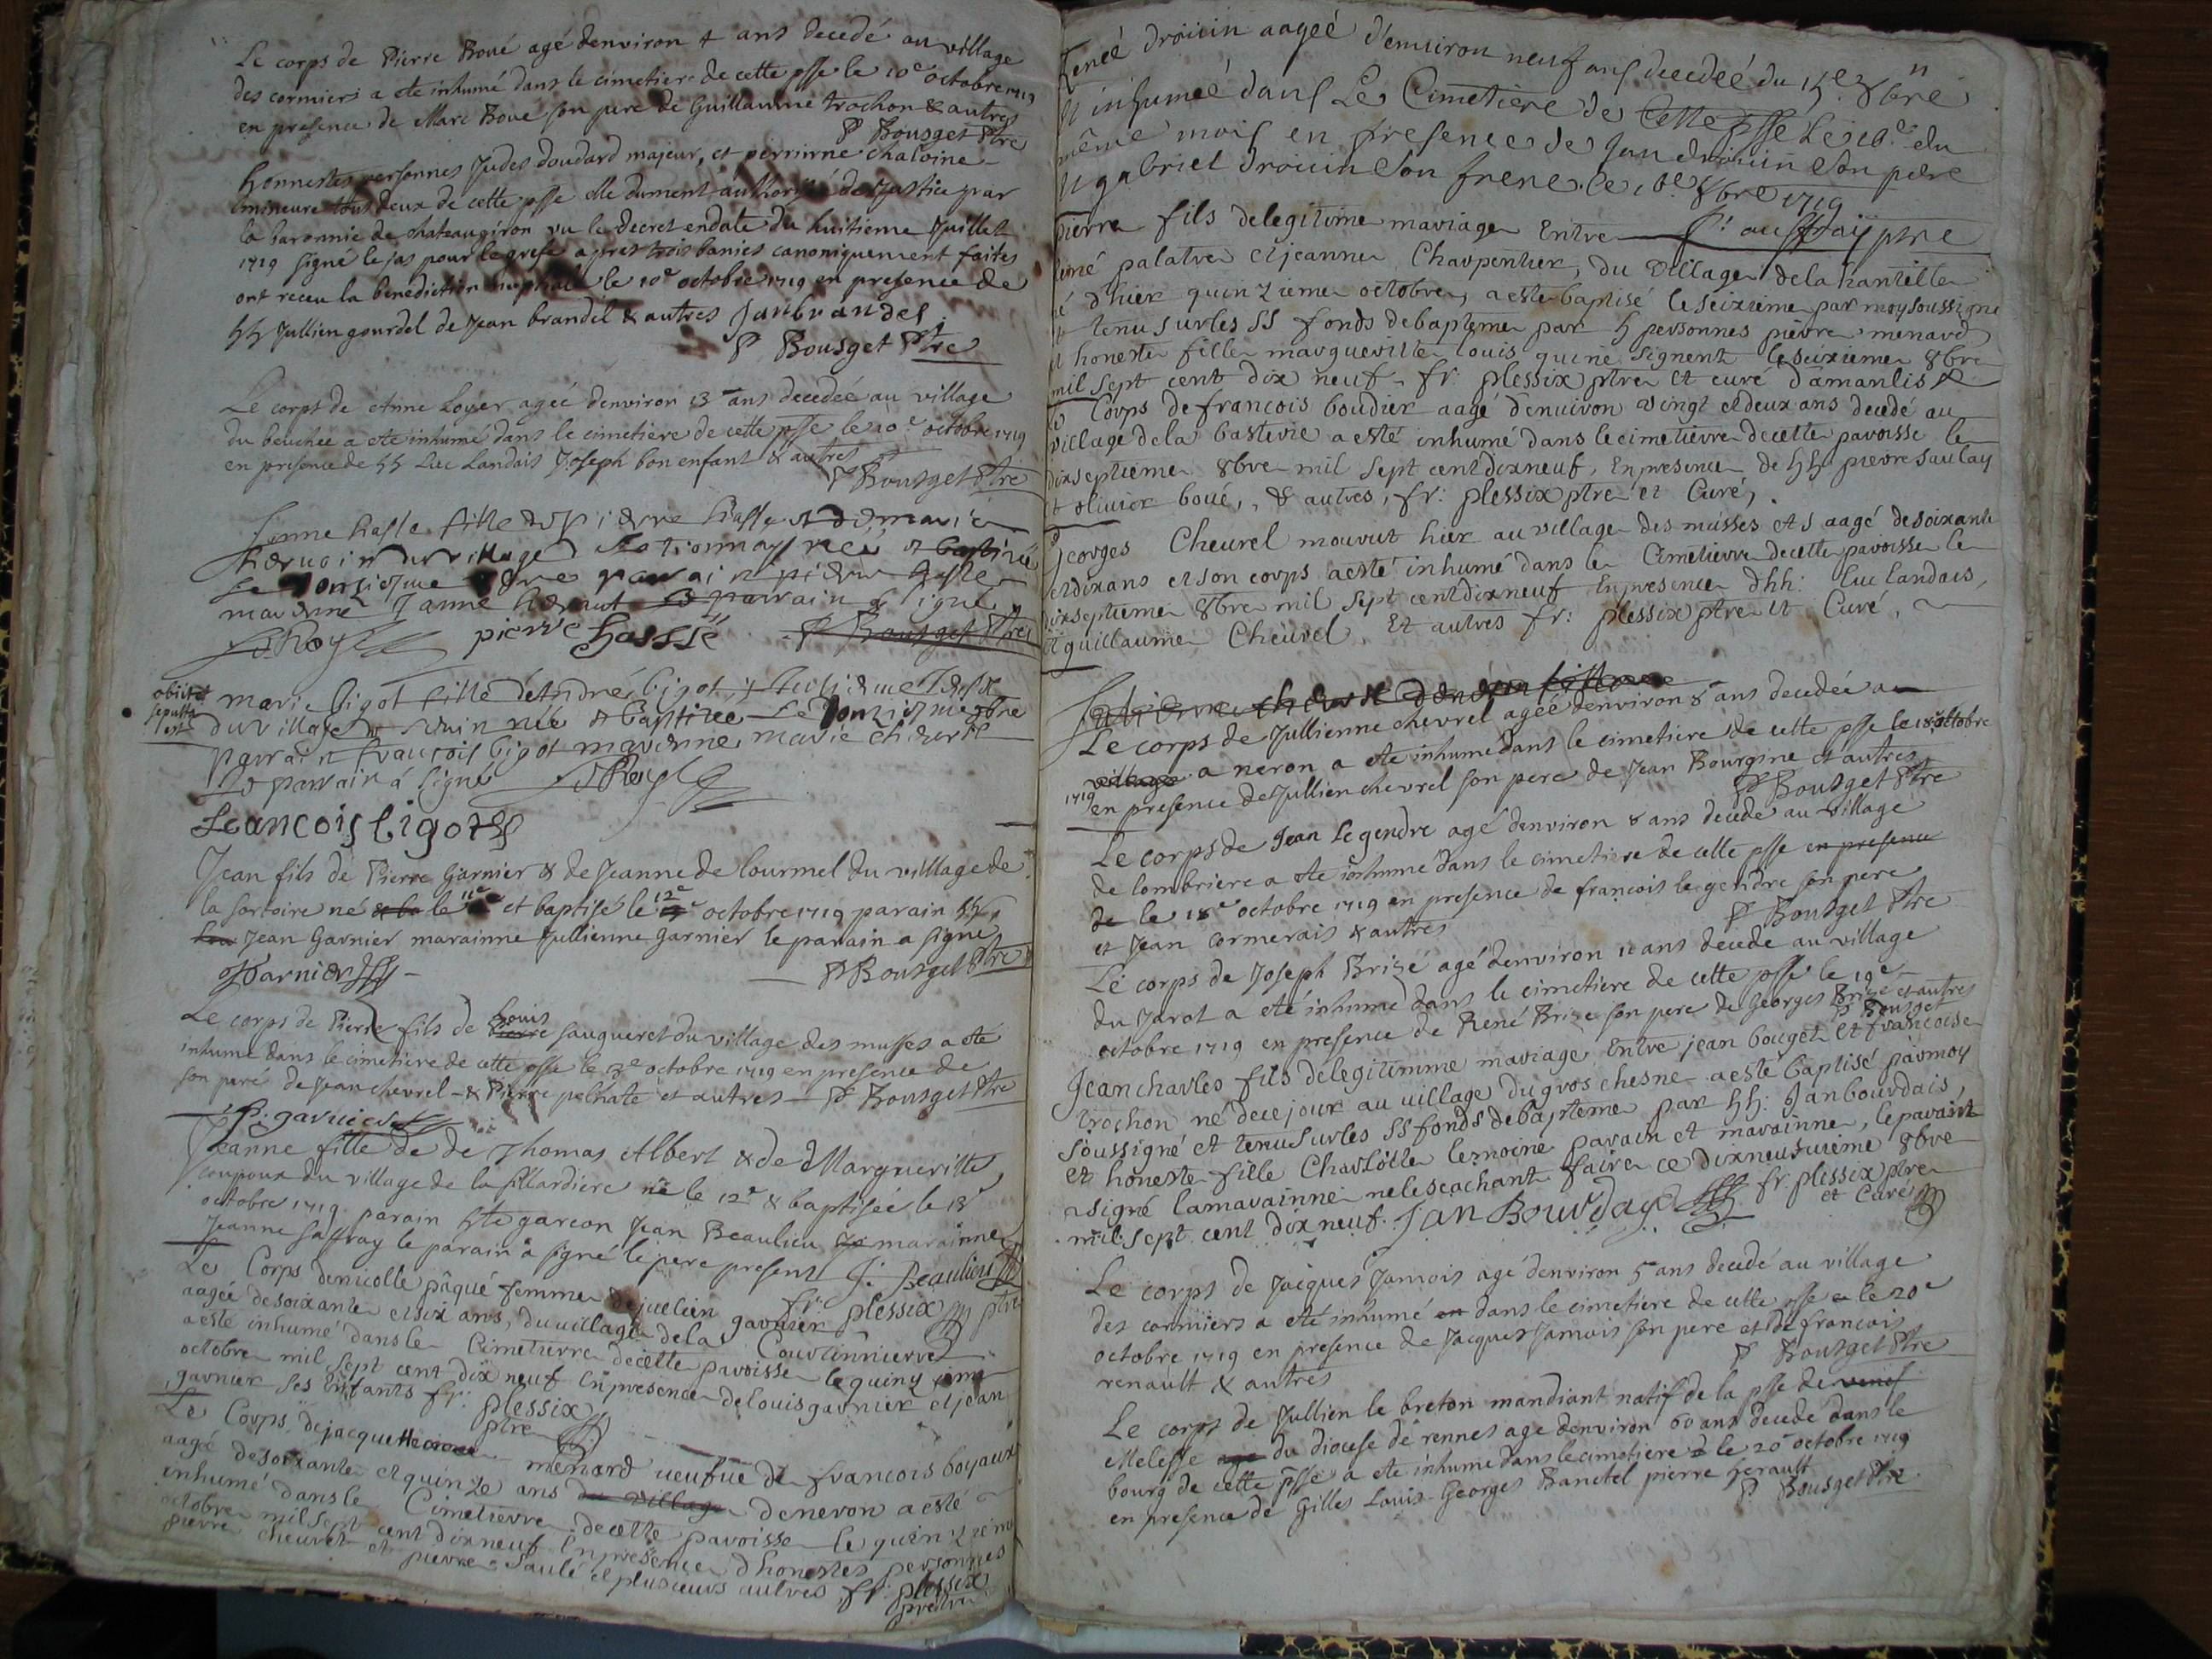 Le corps de Pierre Boué agé denviron 4 ans decedé au village
des cormiers a ete inhumé dans le cimetiere de cette psse le 10e octobre 1719
en presence de Marc Boué son pere de Guillaume trochon & autres
P Bousget Ptre
honnestes personnes Judes doudard majeur, et perrinne chaloine
mineure tous deux de cette psse elle dument authorisé de Justice par
la baronnie de chateaugiron vu le decret en date du huitieme Juillet
1719 signé lejas pour le grefe apres trois banies canoniquement faites
ont receu la benediction nuptiale le 10e octobre 1719 en presence de
hh Jullien gourdel de Jean brandel & autres Jan brandel
P Bousget Ptre
Le corps de Anne Loyer agée denviron 13 ans decedée au village
du beuchee a ete inhumé dans le cimetiere de cette psse le 10e octobre 1719
en presence de hh Luc Landais Joseph bon enfant & autres
P Bousget Ptre
Janne hasle fille de pierre hasle et de marie
du village née et baptisée
le onzieme parain pierre hasle
maraine Janne le parain a signé
pierre hasslé P Bousget Ptre
obiit et
sepulta
est
marie bigot fille de André bigot et
du village de née et baptisee le onzieme 8bre
parain François bigot maraine marie cheurel
le parain a signé
francois bigot
Jean fils de Pierre Garnier & de Jeanne de lourmel du villlage de
la sortoire né & la le 11e et baptisé le 12e octobre 1719 parain hh
Jean Garnier marainne Jullienne Garnier le parain a signé
JGarnier P Bousget Ptre
Le corps de Pierre fils de Pierre Louis sauqueret du village des musses a ete
inhumé dans le cimetiere de cette psse le 13e octobre 1719 en presence de
son peré de Jean chevrel & Pierre pelhate et autres P Bousget Ptre
P: garnier
Jeanne fille de de Thomas Albert & de Margueritte
coupoux du village de la fillardiere né le 12e & baptisée le 13e
octobre 1719 parain hte garcon Jean Beaulieu marainne
Jeanne saffray le parain a signé le pere present J: Beaulieu
Le Corps denicolle pâqué femme de juelien garnier fr: plessix ptre
aagée desoixante et six ans, duvillage dela Courtinnierre
aesté inhumé dans le Cimetierre decette paroisse le quinzieme
octobre mil sept cent dix neuf en presence de louis garnier et jean
garnier ses enfants fr: plessix
ptre
Le Corps dejacquette menard veufue de francois boyaux
aagé desoixante et quinze ans du village deneron a esté
inhumé dans le Cimetierre decette paroisse le quinzieme
octobre mil sept cent dixneuf en presence d honestes personnes
pierre cheurel et pierre saulé et plusieurs autres fr: plessix
prestre
Renéé drouin aageé d'enuiron neuf ans decedeé du 15e 8bre
inhumeé dans le Cimetiere de cette psse le 16e du
même mois en presence de Jan drouin son pere
et gabriel drouin son frere ce 16e 8bre 1719
auffray ptre
pierre fils delegitime mariage Entre
palatre et jeanne Charpentier, du village de la hantelle
né d'hier quinzieme octobre, a esté baptisé le seizieme par moy soussigne
et tenu sur les SS fonds debapteme par h personnes pierre menard
et honeste fille margueritte louis qui ne signent le seixieme 8bre
mil sept cent dix neuf fr: plessix ptre et curé d'amanlis
Le Corps de francois boudier aagé d'enuiron vingt et deux ans decedé au
village de la basterie a esté inhumé dans le cimetierre decette paroisse le
dixseptieme 8bre mil sept cent dixneuf, En presence de hh pierre saulay
et oliuier boué, & autres, fr: plessix ptre et Curé,
georges Cheurel mourut hier au village des musses aagé desoixante
et dix ans et son corps aesté inhumé dans le Cimetierre decette paroisse le
dixseptieme 8bre mil sept cent dixneuf En presence d hh: luc landais,
et guillaume Cheurel, Et autres fr: plessix ptre et Curé,
Le corps de Jullienne chevrel agéé denviron 8 ans decedée au
village a neron a ete inhumé dans le cimetiere de cette psse le 18 octobre
1719 en presence de Jullien chevrel son pere de Jean Bourgine et autres
P Bousget Ptre
Le corps de Jean le gendre agé denviron 8 ans decedé au village
de lombriere a ete inhumé dans le cimetiere de cette psse en presence
de le 18e octobre 1719 en presence de francois le gendre son pere
et Jean cormerais & autres P Bousget Ptre
Le corps de Joseph Brizé agé denviron 10 ans decedé au village
du Jarot a eté inhumé dans le cimetiere de cette psse le 19e
octobre 1719 en presence de René Brize son pere de Georges Brize et autres
P Bousget
Jean charles fils delegitimme mariage Entre jean bouget et francoise
trochon né de ce jour au uillage du gros chesne a esté baptisé parmoy
soussigné et tenu sur les SS fonds debapteme par hh: Jan bourdais,
et honeste fille Charlotte lemoine parain et marainne, le parain
a signé lamarainne ne le scachant faire ce dixneufuieme 8bre
mil sept cent dix neuf. Jan Bourdays fr: plessix ptre
et Curé
Le corps de Jacques Jamois agé denviron 5 ans decedé au village
des cormiers a ete inhumé en dans le cimetiere de cette psse le 20e
octobre 1719 en presence de Jacques Jamois son pere et de francois
renault & autres P Bousget Ptre
Le corps de Jullien le breton mandiant natif de la psse de
Melesse du diocese de rennes agé denviron 60 ans decedé dans le
bourg de cette psse a ete inhumé dans le cimetiere le 20e octobre 1719
en presence de Gilles Louis Georges Banctel pierre herault
P Bousget Ptre